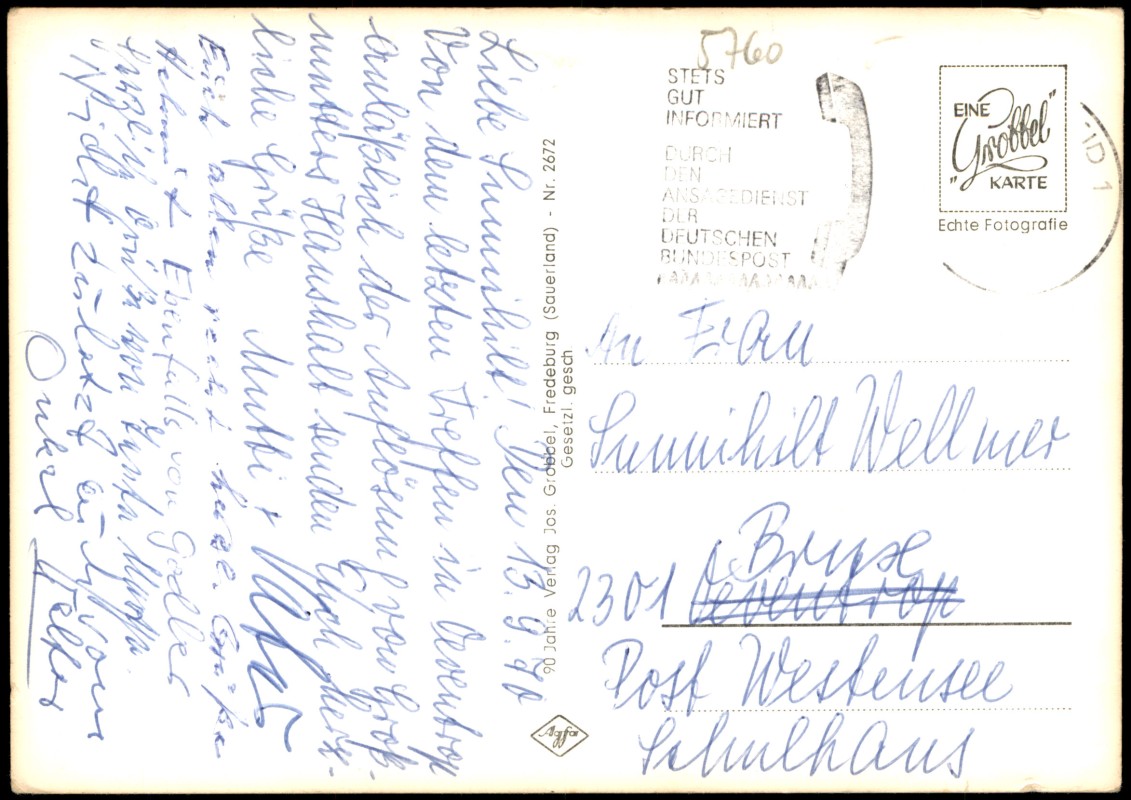 Liebe Sunnihilt! Den 13.9.70
Von dem letzten Treffen in Oeventrop
anläßlich der Auflösung von Groß-
mutters Haushalt senden Euch herz-
liche Grüße Mutti +
Euch allen recht herzl. Grüße
Helmut Ebenfalls von
Herzlich Grüße von
zuletzt auch vom
Onkel
90 Jahre Verlag Jos. Grobbel, Fredeburg (Sauerland) - Nr. 2672
Gesetzl. gesch
Agfa
5760
STETS
GUT
INFORMIERT
DURCH
DEN
ANSAGEDIENST
DER
DEUTSCHEN
BUNDESPOST
EINE
"Grobbel"
KARTE
Echte Fotografie
1
An Frau
Sunnihilt Wellmer
Brux
2301 Oeventrop
Post Westensee
Schulhaus